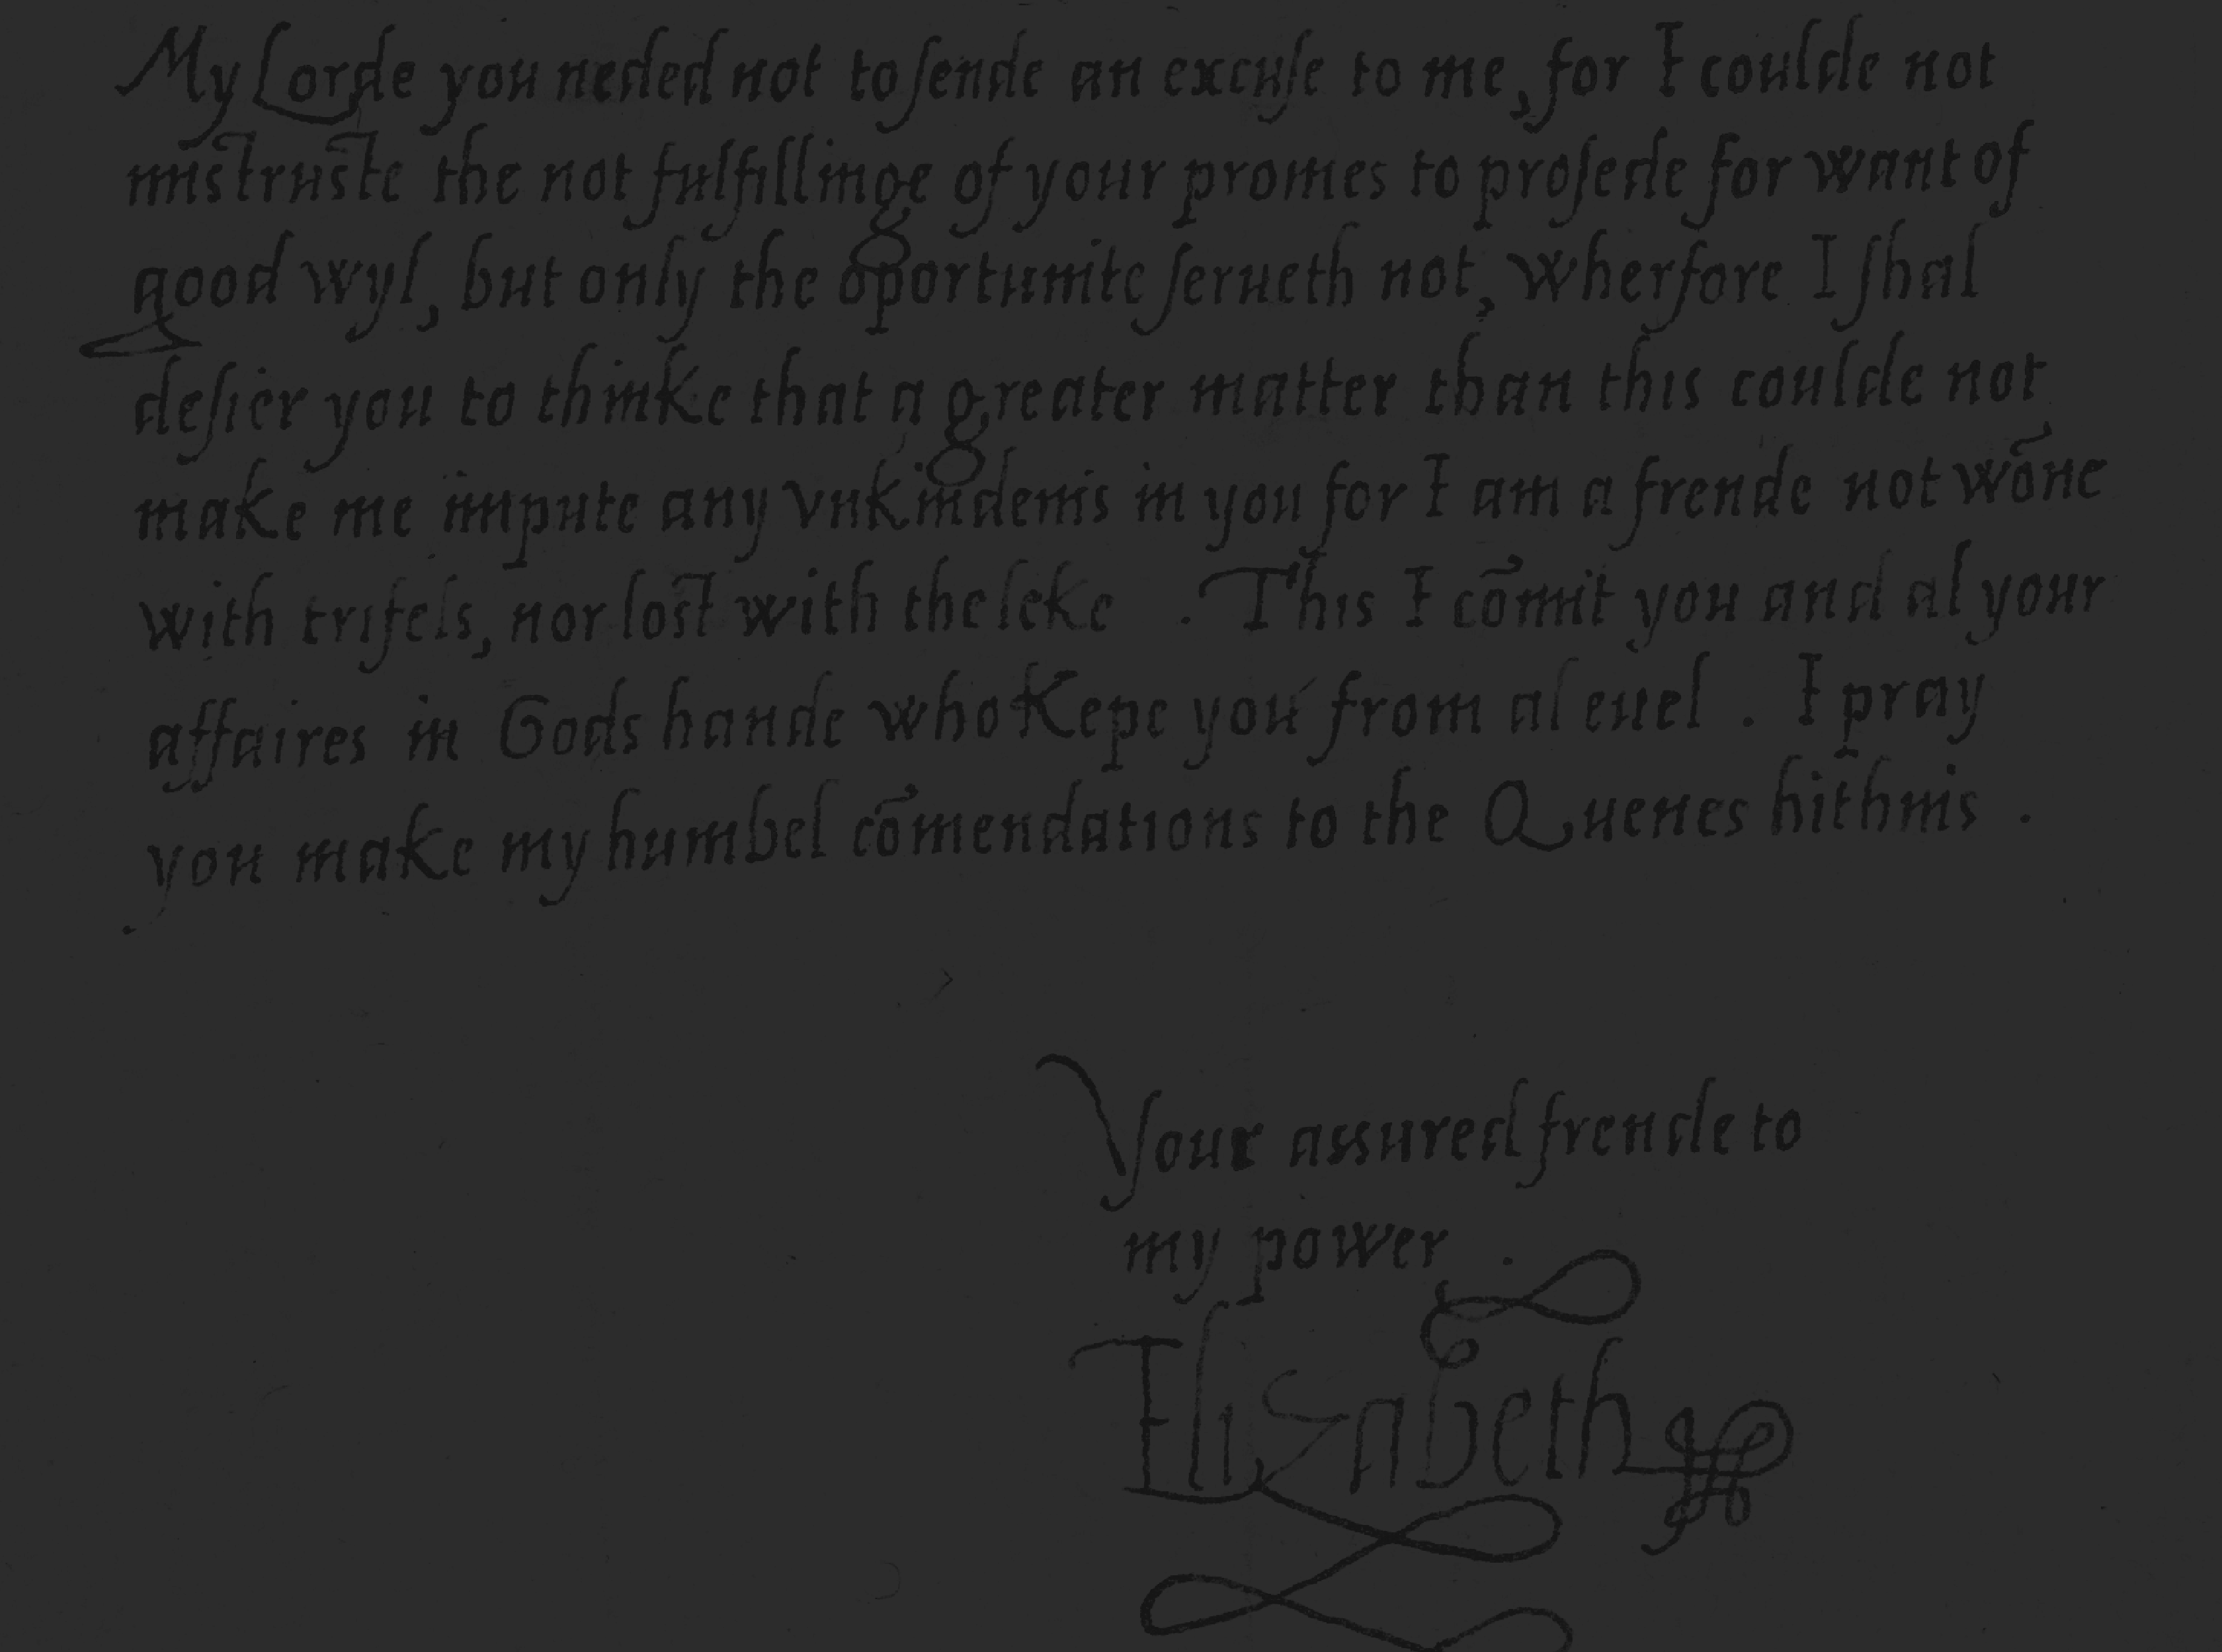 My Lorde you neded not to sende an excuse to me, for I coulde not
mistruste the not fulfillinge of your promes to prosede for want of
good wyl, but only the oportunite serueth not, wherfore I shal
desier you to thinke that a greater matter than this coulde not
make me impute any vnkindenis in you for I am a frende not wōne
with trifels, nor lost with the leke . This I cōmit you and al your
affaires in Gods hande who kepe you from al euel . I pray
you make my humbel cōmendations to the Quenes hithnis .
Your assured frende to
my power .
Elizabeth